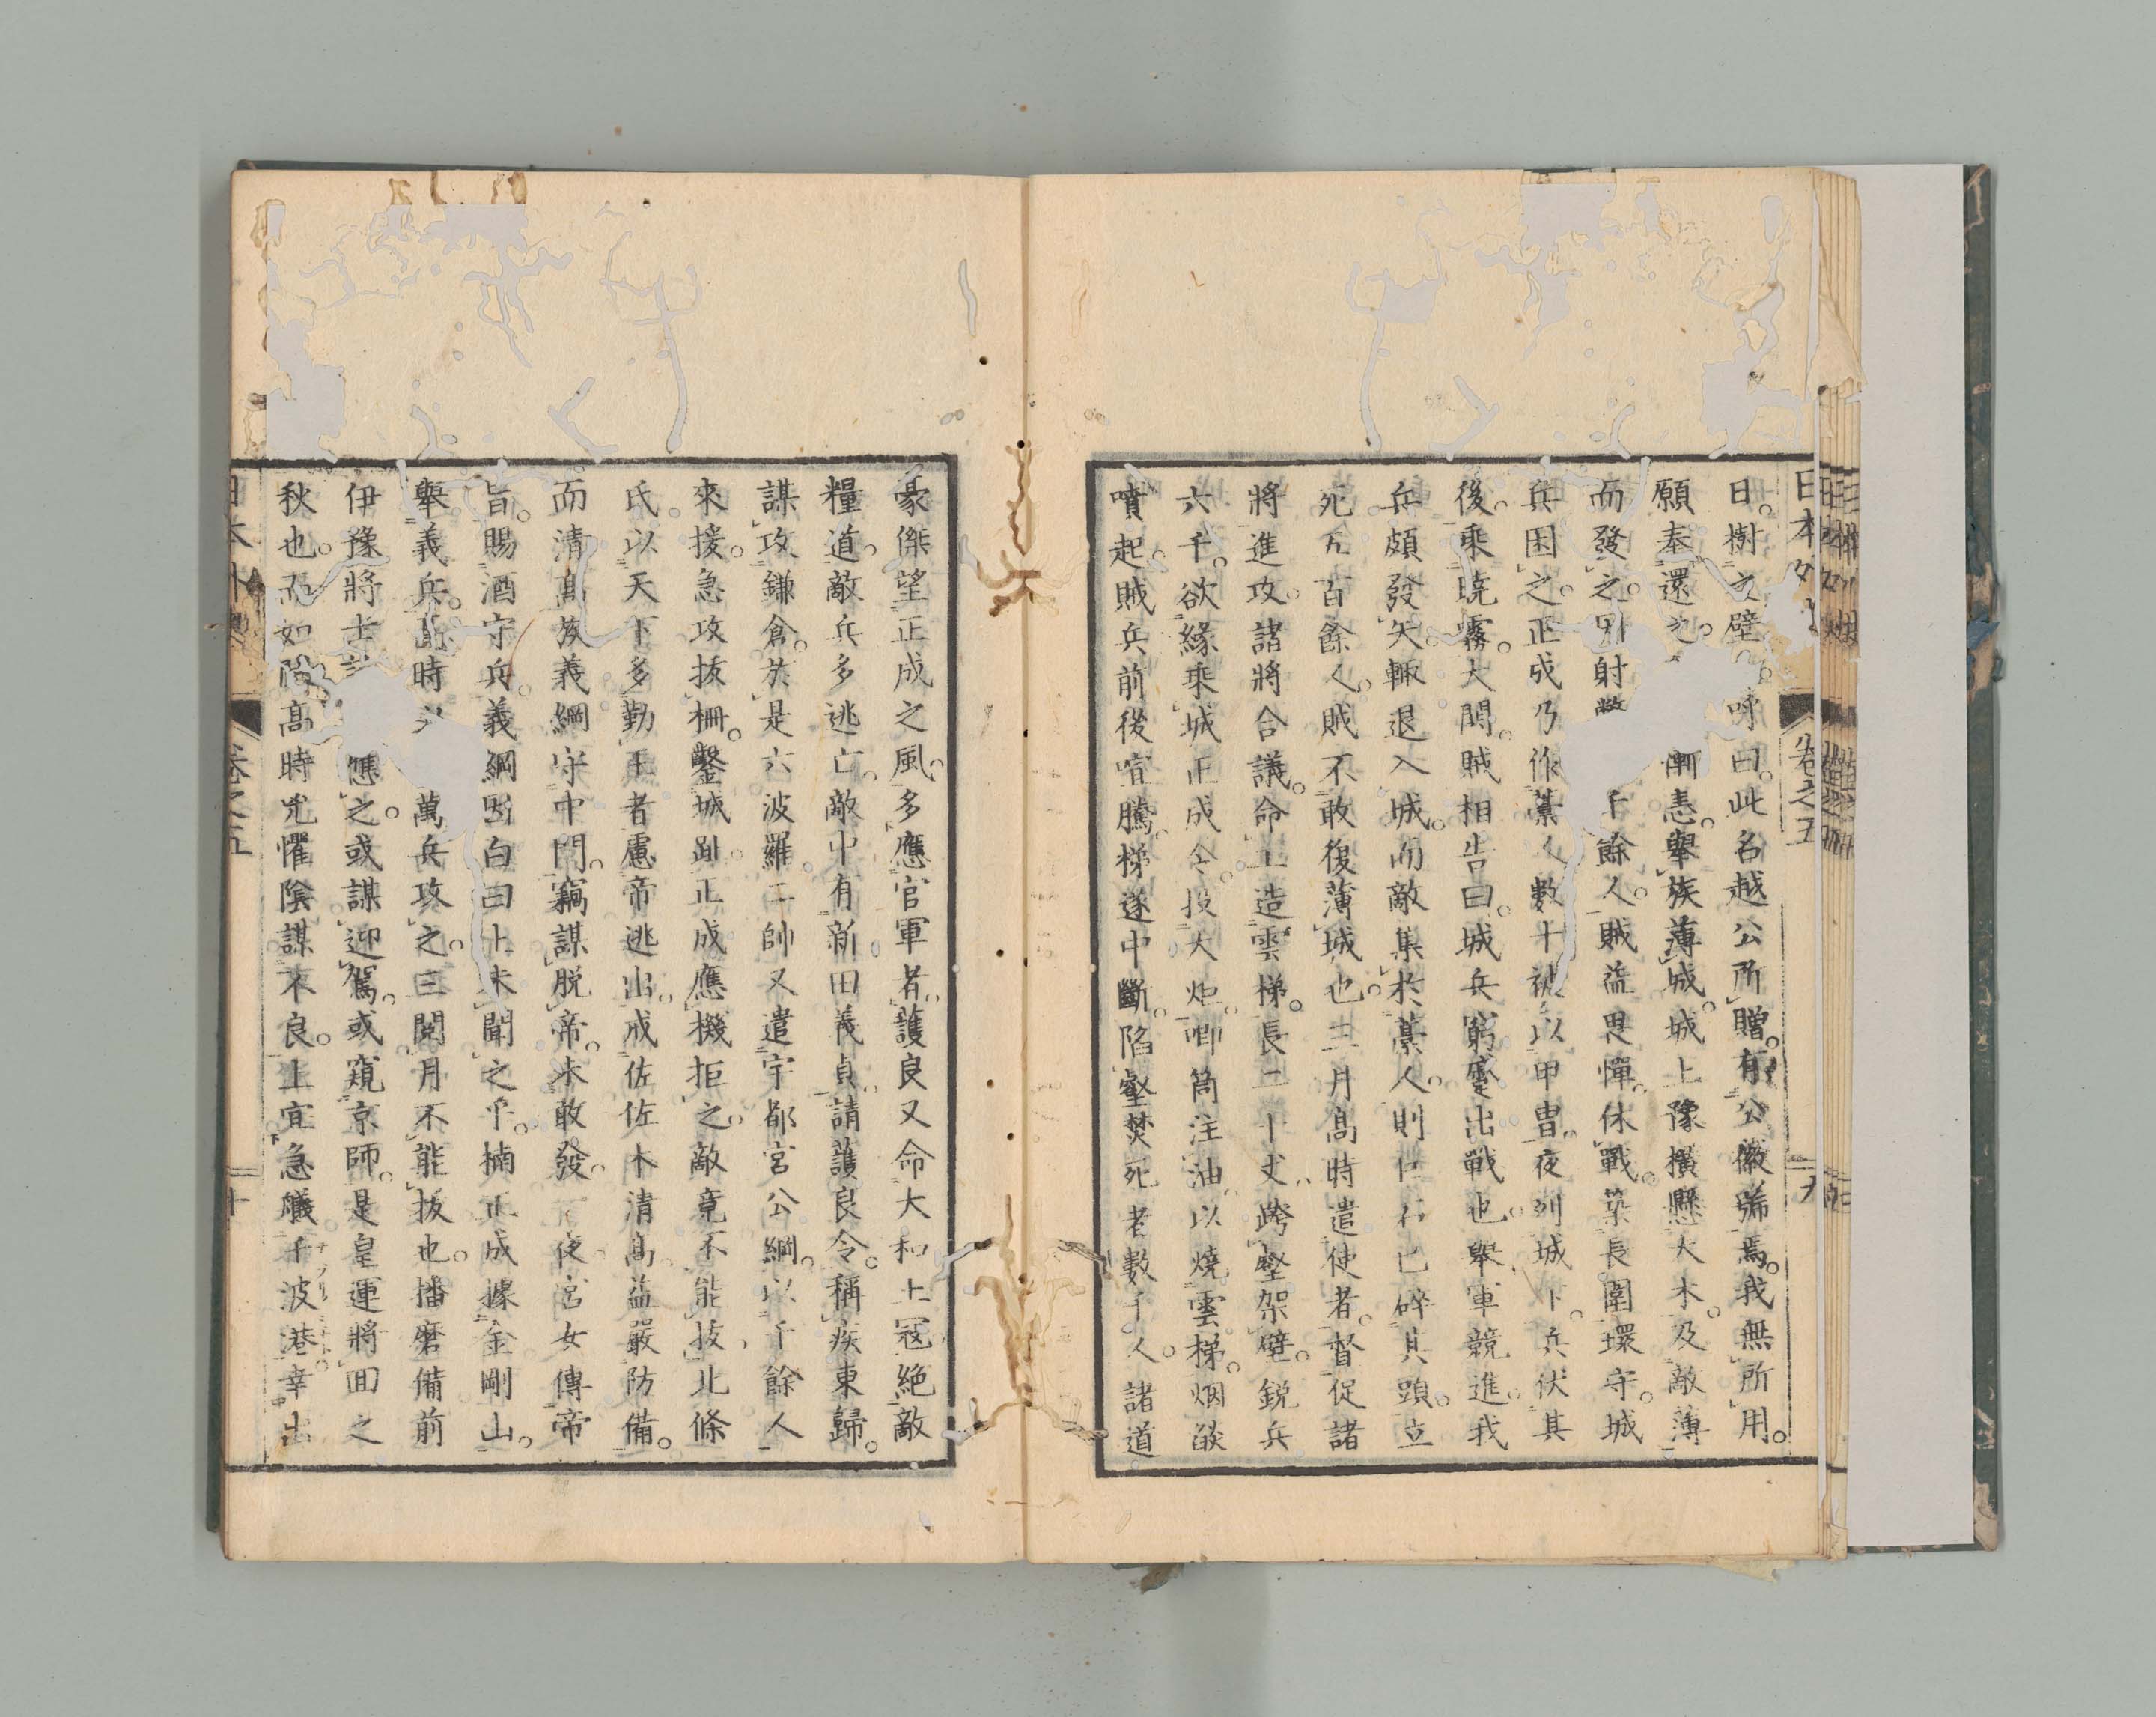 日樹之壁呼曰此名越公所贈有公徽號焉我無所用
願奉還之慚恚擧族薄城城上豫攢懸大木及敵薄
而發之因射千餘人賊益畏憚休戰築長圍環守城
兵困之正成乃作藁人數十被以甲冑夜列城下兵伏其
後乘曉霧大鬨賊相告曰城兵窮蹙出戰也擧軍競進我
兵頗發矢輙退入城而敵集於藁人則巨石已碎其頭立
死五百餘人賊不敢復薄城也三月高時遣使者督促諸
將進攻諸將合議命工造雲梯長二十丈跨壑架壁鋭兵
六千欲緣乘城正成令投大炬喞筒注油以燒雲梯烟燄
噴起賊兵前後喧騰梯遂中斷陷壑焚死者數千人諸道
日本外史 卷之五 九
豪傑望正成之風多應官軍者護良又命大和土寇絶敵
糧道敵兵多逃亡敵中有新田義貞請護良令稱疾東歸
謀攻鎌倉於是六波羅二帥又遣宇都宮公綱以千餘人
來援急攻拔柵鑿城趾正成應機拒之敵竟不能拔北條
氏以天下多勤王者慮帝逃出戒佐佐木清高益嚴防備
而清高族義綱守中門竊謀脱帝未敢發一夜宮女傳帝
旨賜酒守兵義綱因白曰上未聞之乎楠正成據金剛山
擧義兵高時以萬兵攻之三閲月不能拔也播磨備前
伊豫將士應之或謀迎駕或窺京師是皇運將回之
秋也而如隱高時兇懼陰謀不良上宜急艤千波港幸出
日本外史 卷之五 十